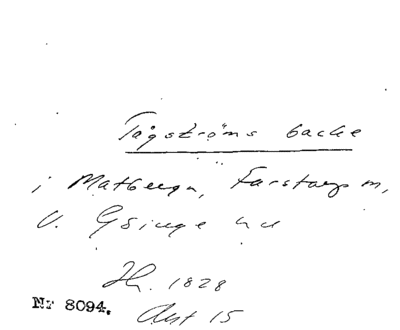 Tågströms backe
i Matberga, Farstorps sn,
V. Göinge hd
Ih. 1828
Nr 8094.
Aut 15